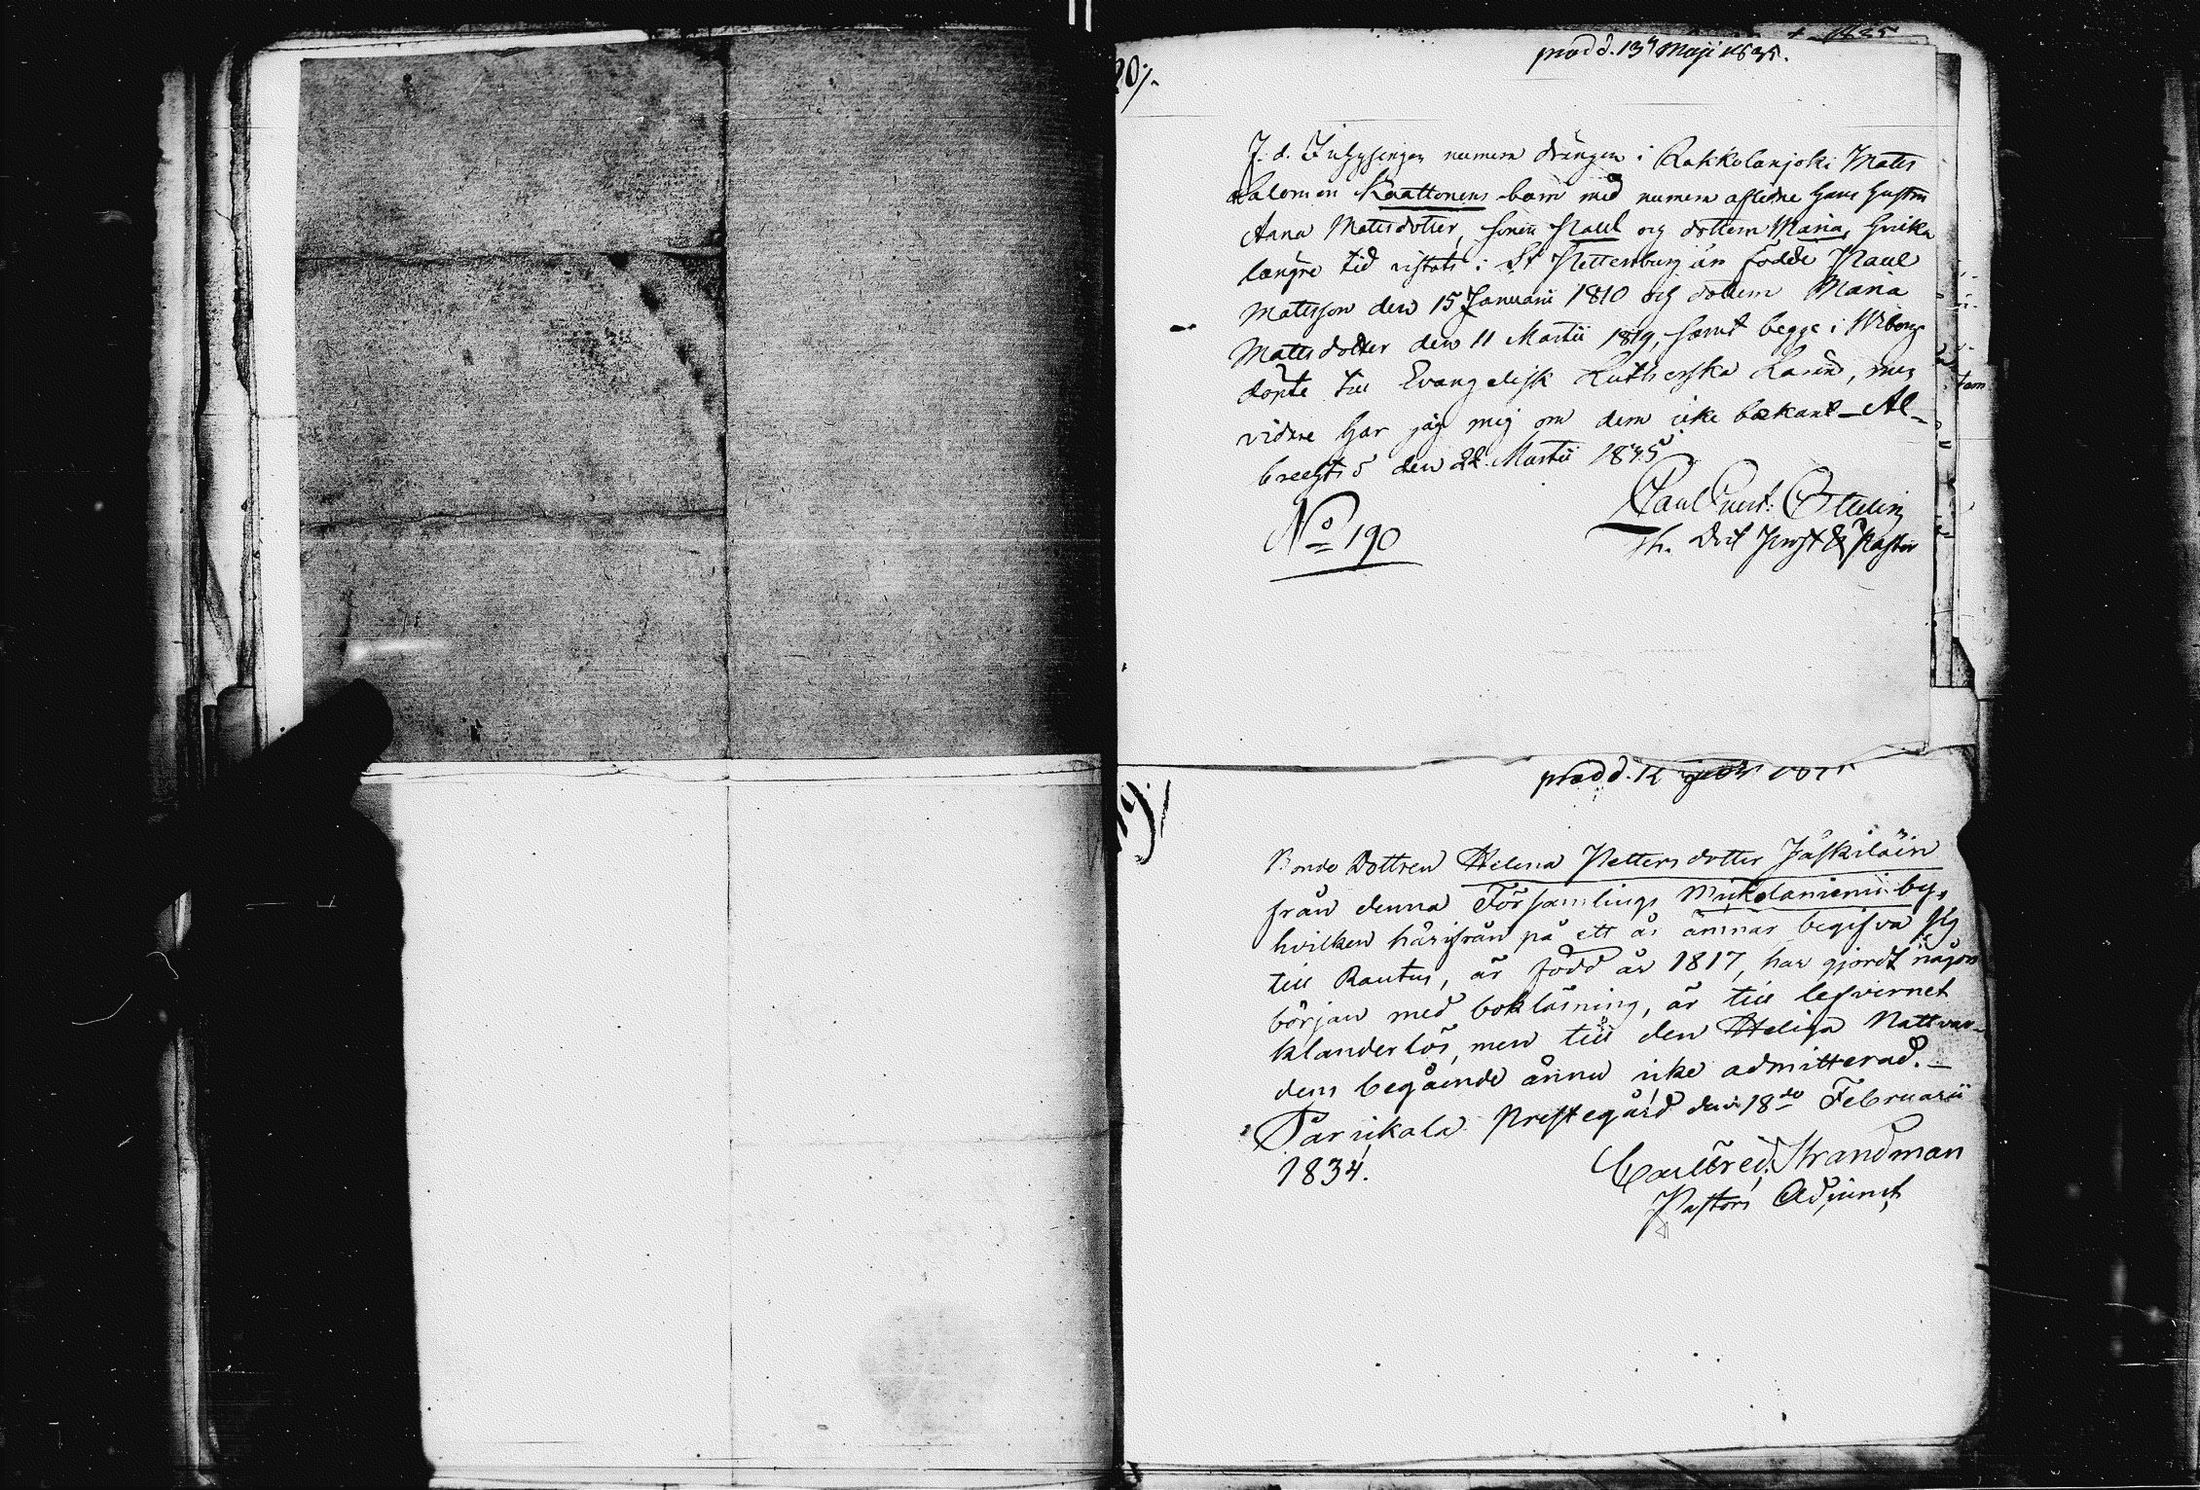 20/.
prod d. 13 Maji 1835.
numera drängen i Rakkolanjoki Matts
Salomon Kaattonens barn med numera aflidne hans hustru
Anna Mattsdotter, sonen Paul och dottern Maria, hvilka
längre tid vistats i St Pettersburg än födde Paul
Mattsson den 15 Januarii 1810 och dottern Maria
Mattsdotter den 11 Martii 1819, samt begge i Wiborg
döpte till Evangelisk Lutherska Läran, men
vidare har jag mig om dem icke bekant
den 22 Martii 1835
No 190
Paul
Prost & Pastor
19/
prod d. 12
Bonde Dottren Helena Petters dotter Jäskiläin
från denna Församlings Mikolaniemi by,
hvilken härifrån på ett år ämnar begifva sig
till Rautus, är född år 1817, har gjordt någon
början med bokläsning, är till lefvernet
klanderlös, men till den Heliga Nattvar-
dens begående ännu icke admitterad.
Parikala Prestegård den 18de Februarii
1834.
Carl Fred. Strandman
Pastors Adjunct